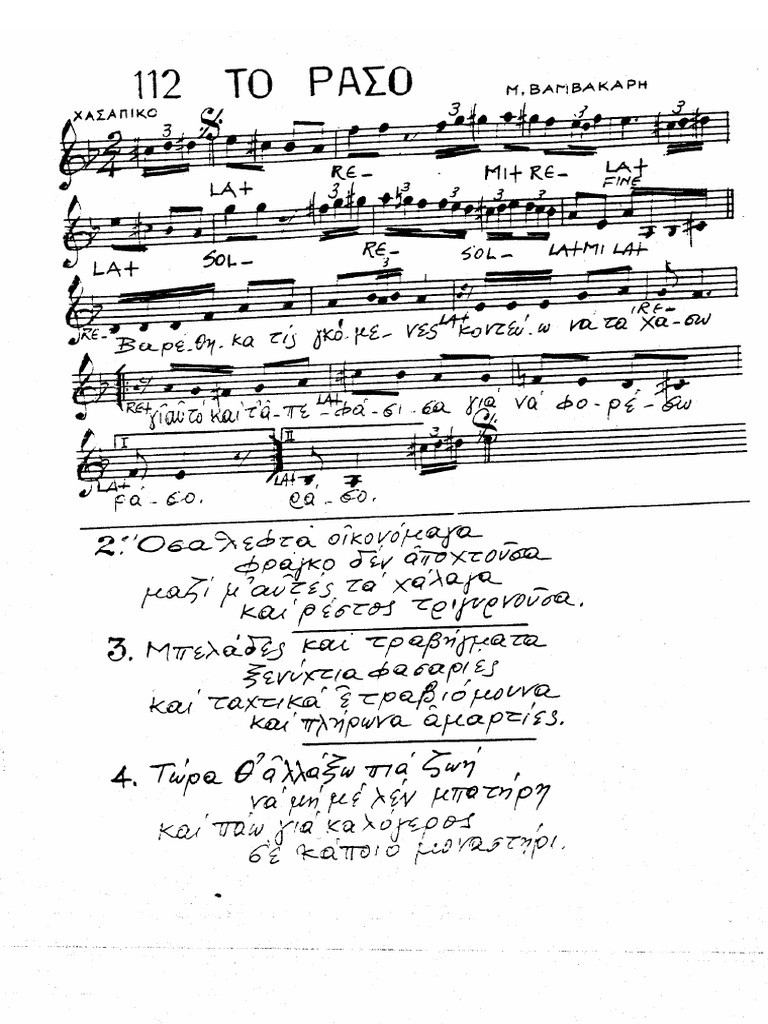 112 ΤΟ ΡΑΣΟ
Μ. ΒΑΜΒΑΚΑΡΗ
ΧΑΣΑΠΙΚΟ
LA+ RE- MI+ RE- LA+
FINE
LA+ SOL- RE- SOL- LA+ MI LA+
RE- LA+ RE-
Βαρέ-θη-κα τίς γκό-με-νες κοντεύ-ω νά τα χά-σω
RE+ LA+
γι αὐτό καί τ' ἀ-πε-φά-σι-σα γιά νά φο-ρέ-σω
I II
LA+ LA+
ρά-σο. ρα-σο.
2. Ὅσα λεφτά οἰκονόμαγα
φράγκο δέν ἀποχτοῦσα
μαζί μ' αὐτές τά χάλαγα
καί ρέστος τριγυρνοῦσα.
3. Μπελάδες καί τραβήγματα
ξενύχτια φασαρίες
καί ταχτικά ἐτραβιόμουνα
καί πλήρωνα ἁμαρτίες.
4. Τώρα θ' ἀλλάξω πιά ζωή
νά μή μέ λέν μπατήρη
καί πάω γιά καλόγερος
σέ κάποιο μοναστήρι.